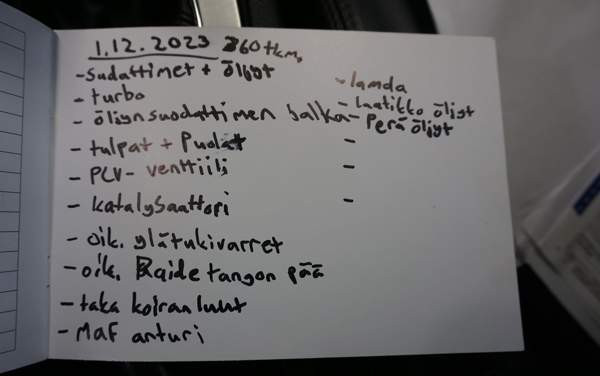 1.12.2023 360tkm,
- Sudattimet + Öljyt
- turbo
- öljynsuodattimen balka
- tulpat + Puolat
- PCV- venttiili
- katalysaattori
- oik. ylätukivarret
- oik. Raidetangon pää
- taka koiranluut
- MAF anturi
- lamda
- laatikko öljyt
- Perä öljyt
-
-
-